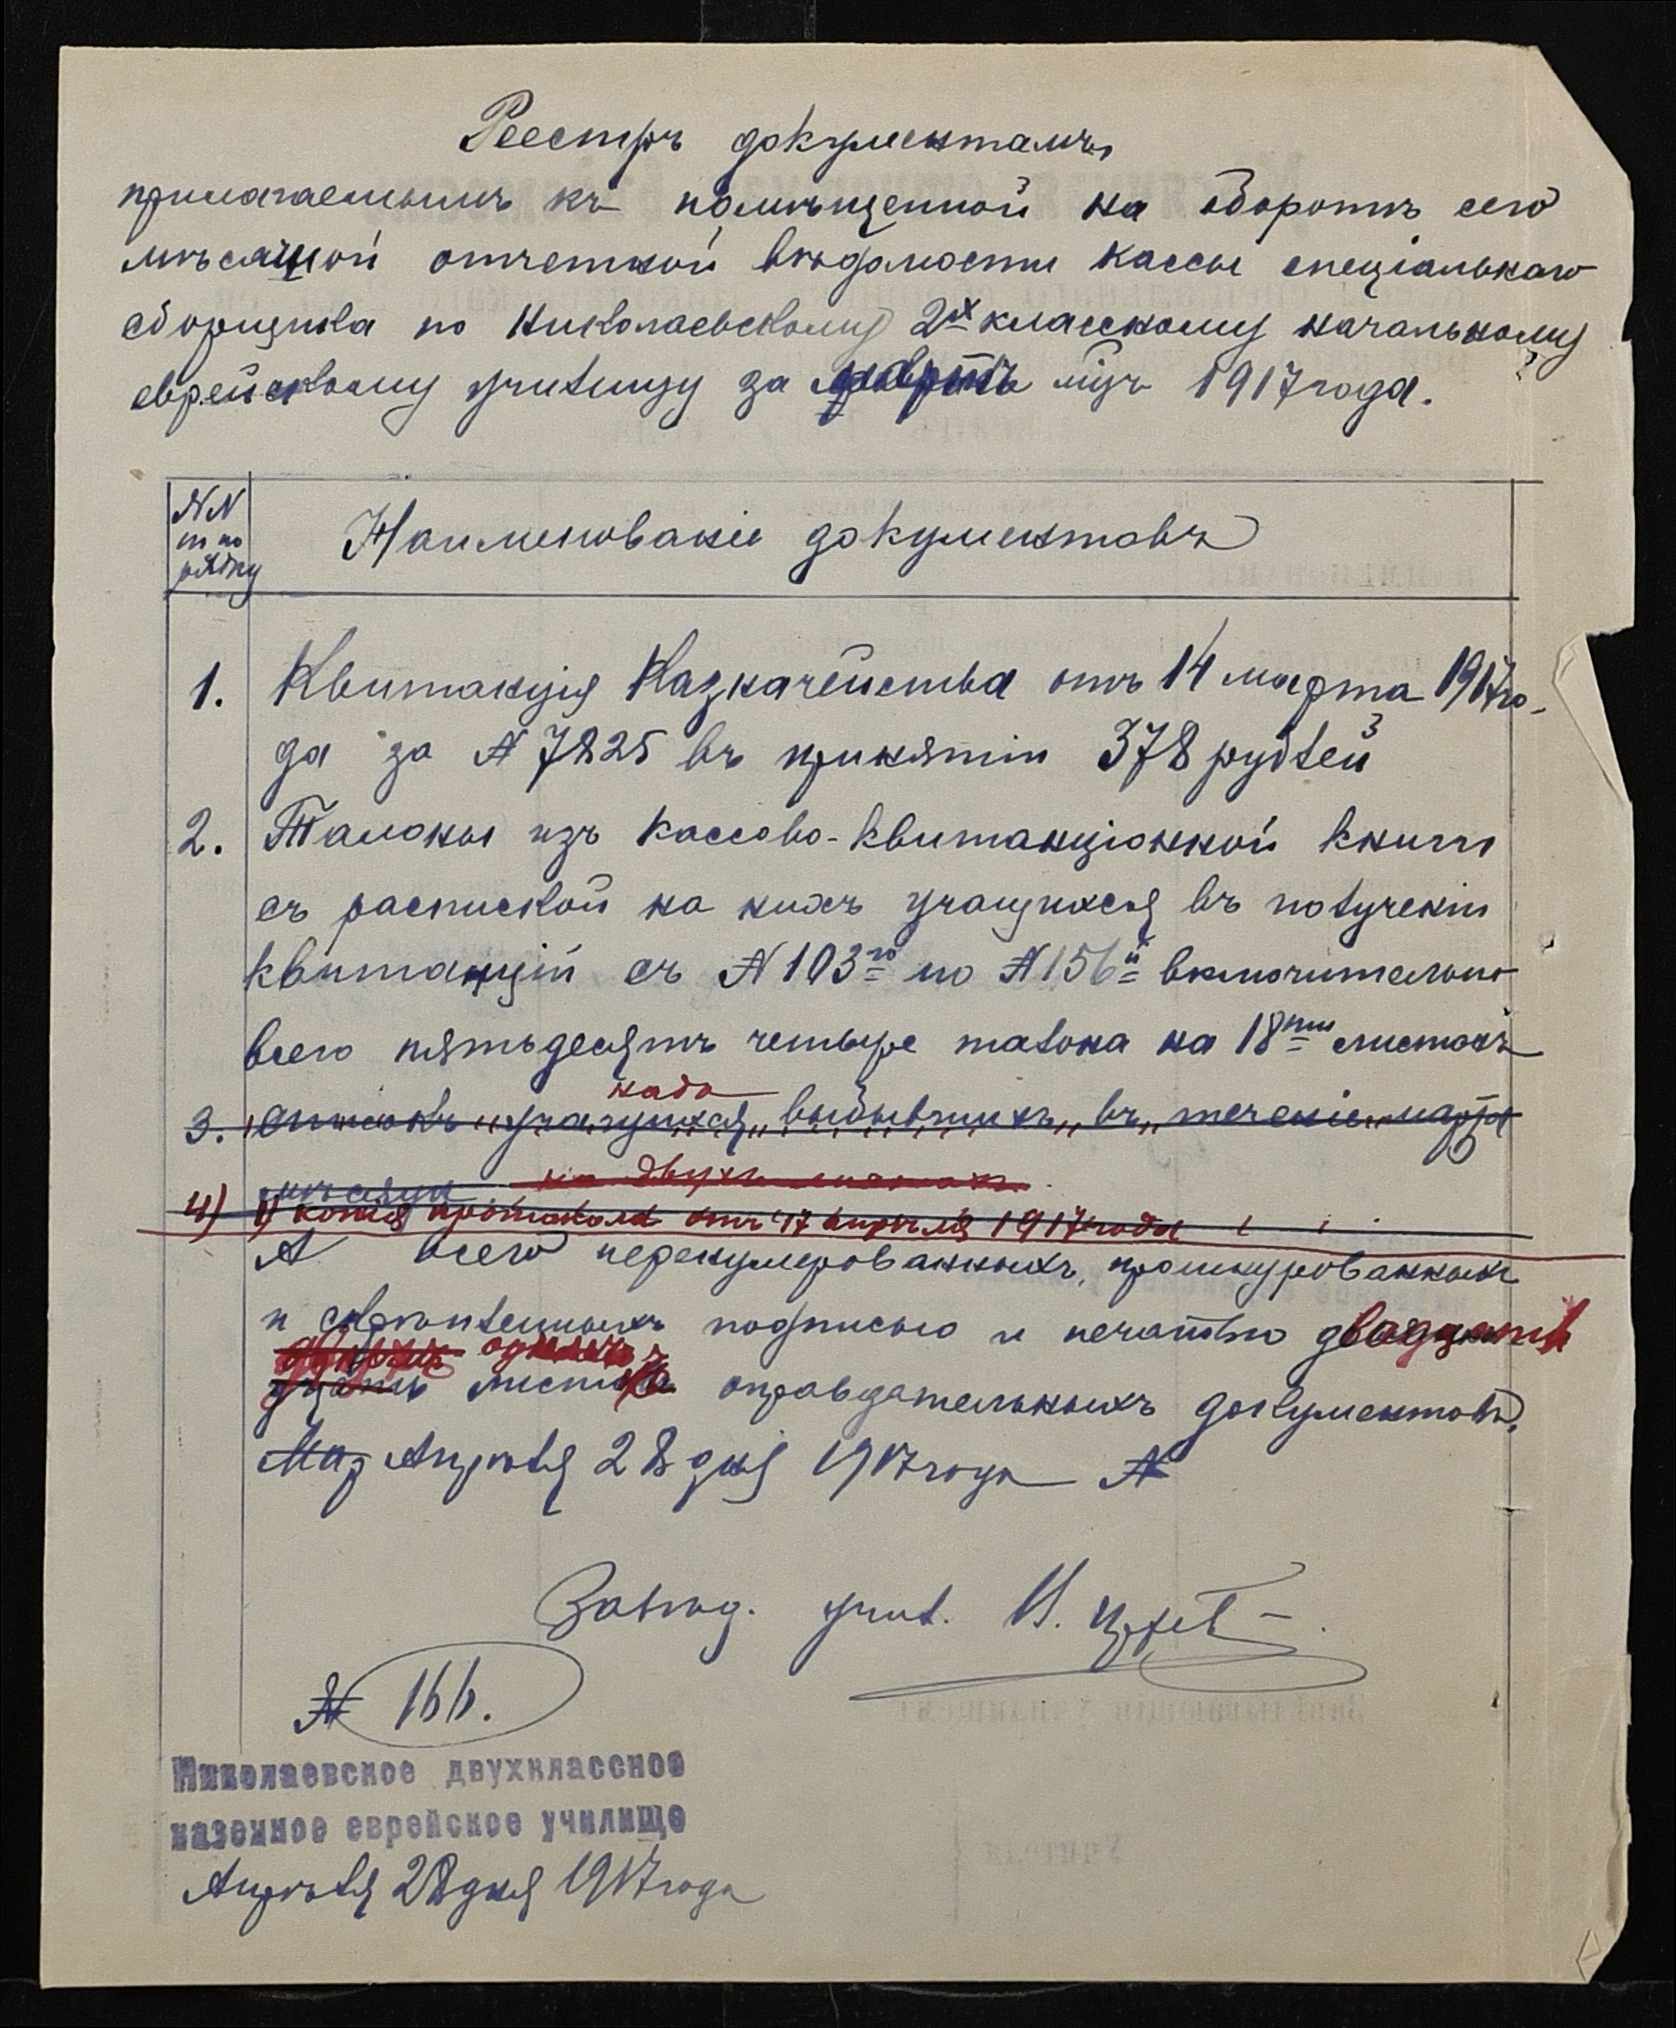 Реестръ документамъ,
прилагаемымъ къ помѣщенной на оборотѣ сего
мѣсячной отчетной вѣдомости кассы спеціальнаго
сборщика по Николаевскому 2х классному начальному
еврейскому училищу за мѣц. 1917 года.
NN
по по
рядку
Наименованіе документовъ
1. Квитанція Казначейства отъ 14 марта 1917 го-
да за № 7825 въ принятіи 378 рублей
2. Талоны изъ кассово-квитанціонной книги
съ распиской на нихъ учащихся въ полученіи
квитанцій съ № 103го по № 156й включительно
всего пятьдесятъ четыре талона на 18ти листахъ
надо
3. списокъ учащихся, выбывшихъ въ теченіе марта
мѣсяца на двухъ листахъ.
4) копія протокола отъ 17 апрѣля 1917 года
А всего перенумерованныхъ, прошнурованныхъ
и скрѣпленныхъ подписью и печатью двадцать
одинъ листъ оправдательныхъ документовъ.
Апрѣля 28 дня 1917 года №
Завѣд. учил. И.
№ 166.
Николаевское двухклассное
казенное еврейское училище
Апрѣля 28 дня 1917 года